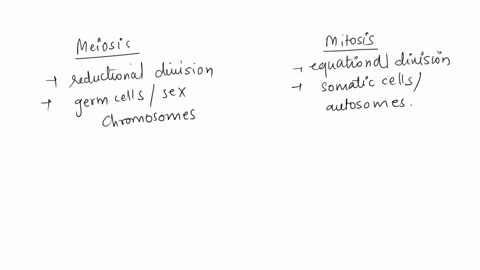 Meiosis
→ reductional division
→ germ cells / sex
chromosomes
Mitosis
→ equational division
→ somatic cells /
autosomes.